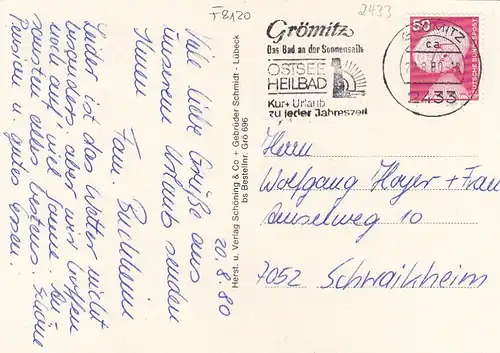 F8120
2433
Grömitz
Das Bad an der Sonnenseite
OSTSEE
HEILBAD
Kur + Urlaub
zu jeder Jahreszeit
GRÖMITZ
ca
80-18
2433
50
DEUTSCHE BUNDESPOST
Herrn
Wolfgang Hoyer + Frau
Amselweg 10
7052 Schwaikheim
20.8.80
Viele liebe Grüße aus
unserem Urlaub senden
Ihnen
Fam. Buchheim
Leider ist das Wetter nicht
besonders, aber wir hoffen
noch auf viel Sonne.
sonsten alles bestens. Schöne
Pension u. gutes Essen.
Herst. u. Verlag Schöning & Co + Gebrüder Schmidt - Lübeck
bs Bestellnr. Grö 696